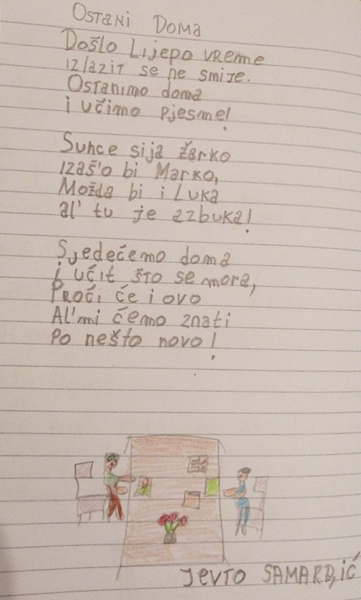 Ostani Doma
Došlo Lijepo vreme
izlazit se ne smije.
Ostanimo doma
i učimo pjesme!
Sunce sija žarko
izaš'o bi Marko,
Možda bi i Luka
al' tu je azbuka!
Sjedećemo doma
i učit što se mora,
Proći će i ovo
Al' mi ćemo znati
Po nešto novo!
Jevto SAMARDžić